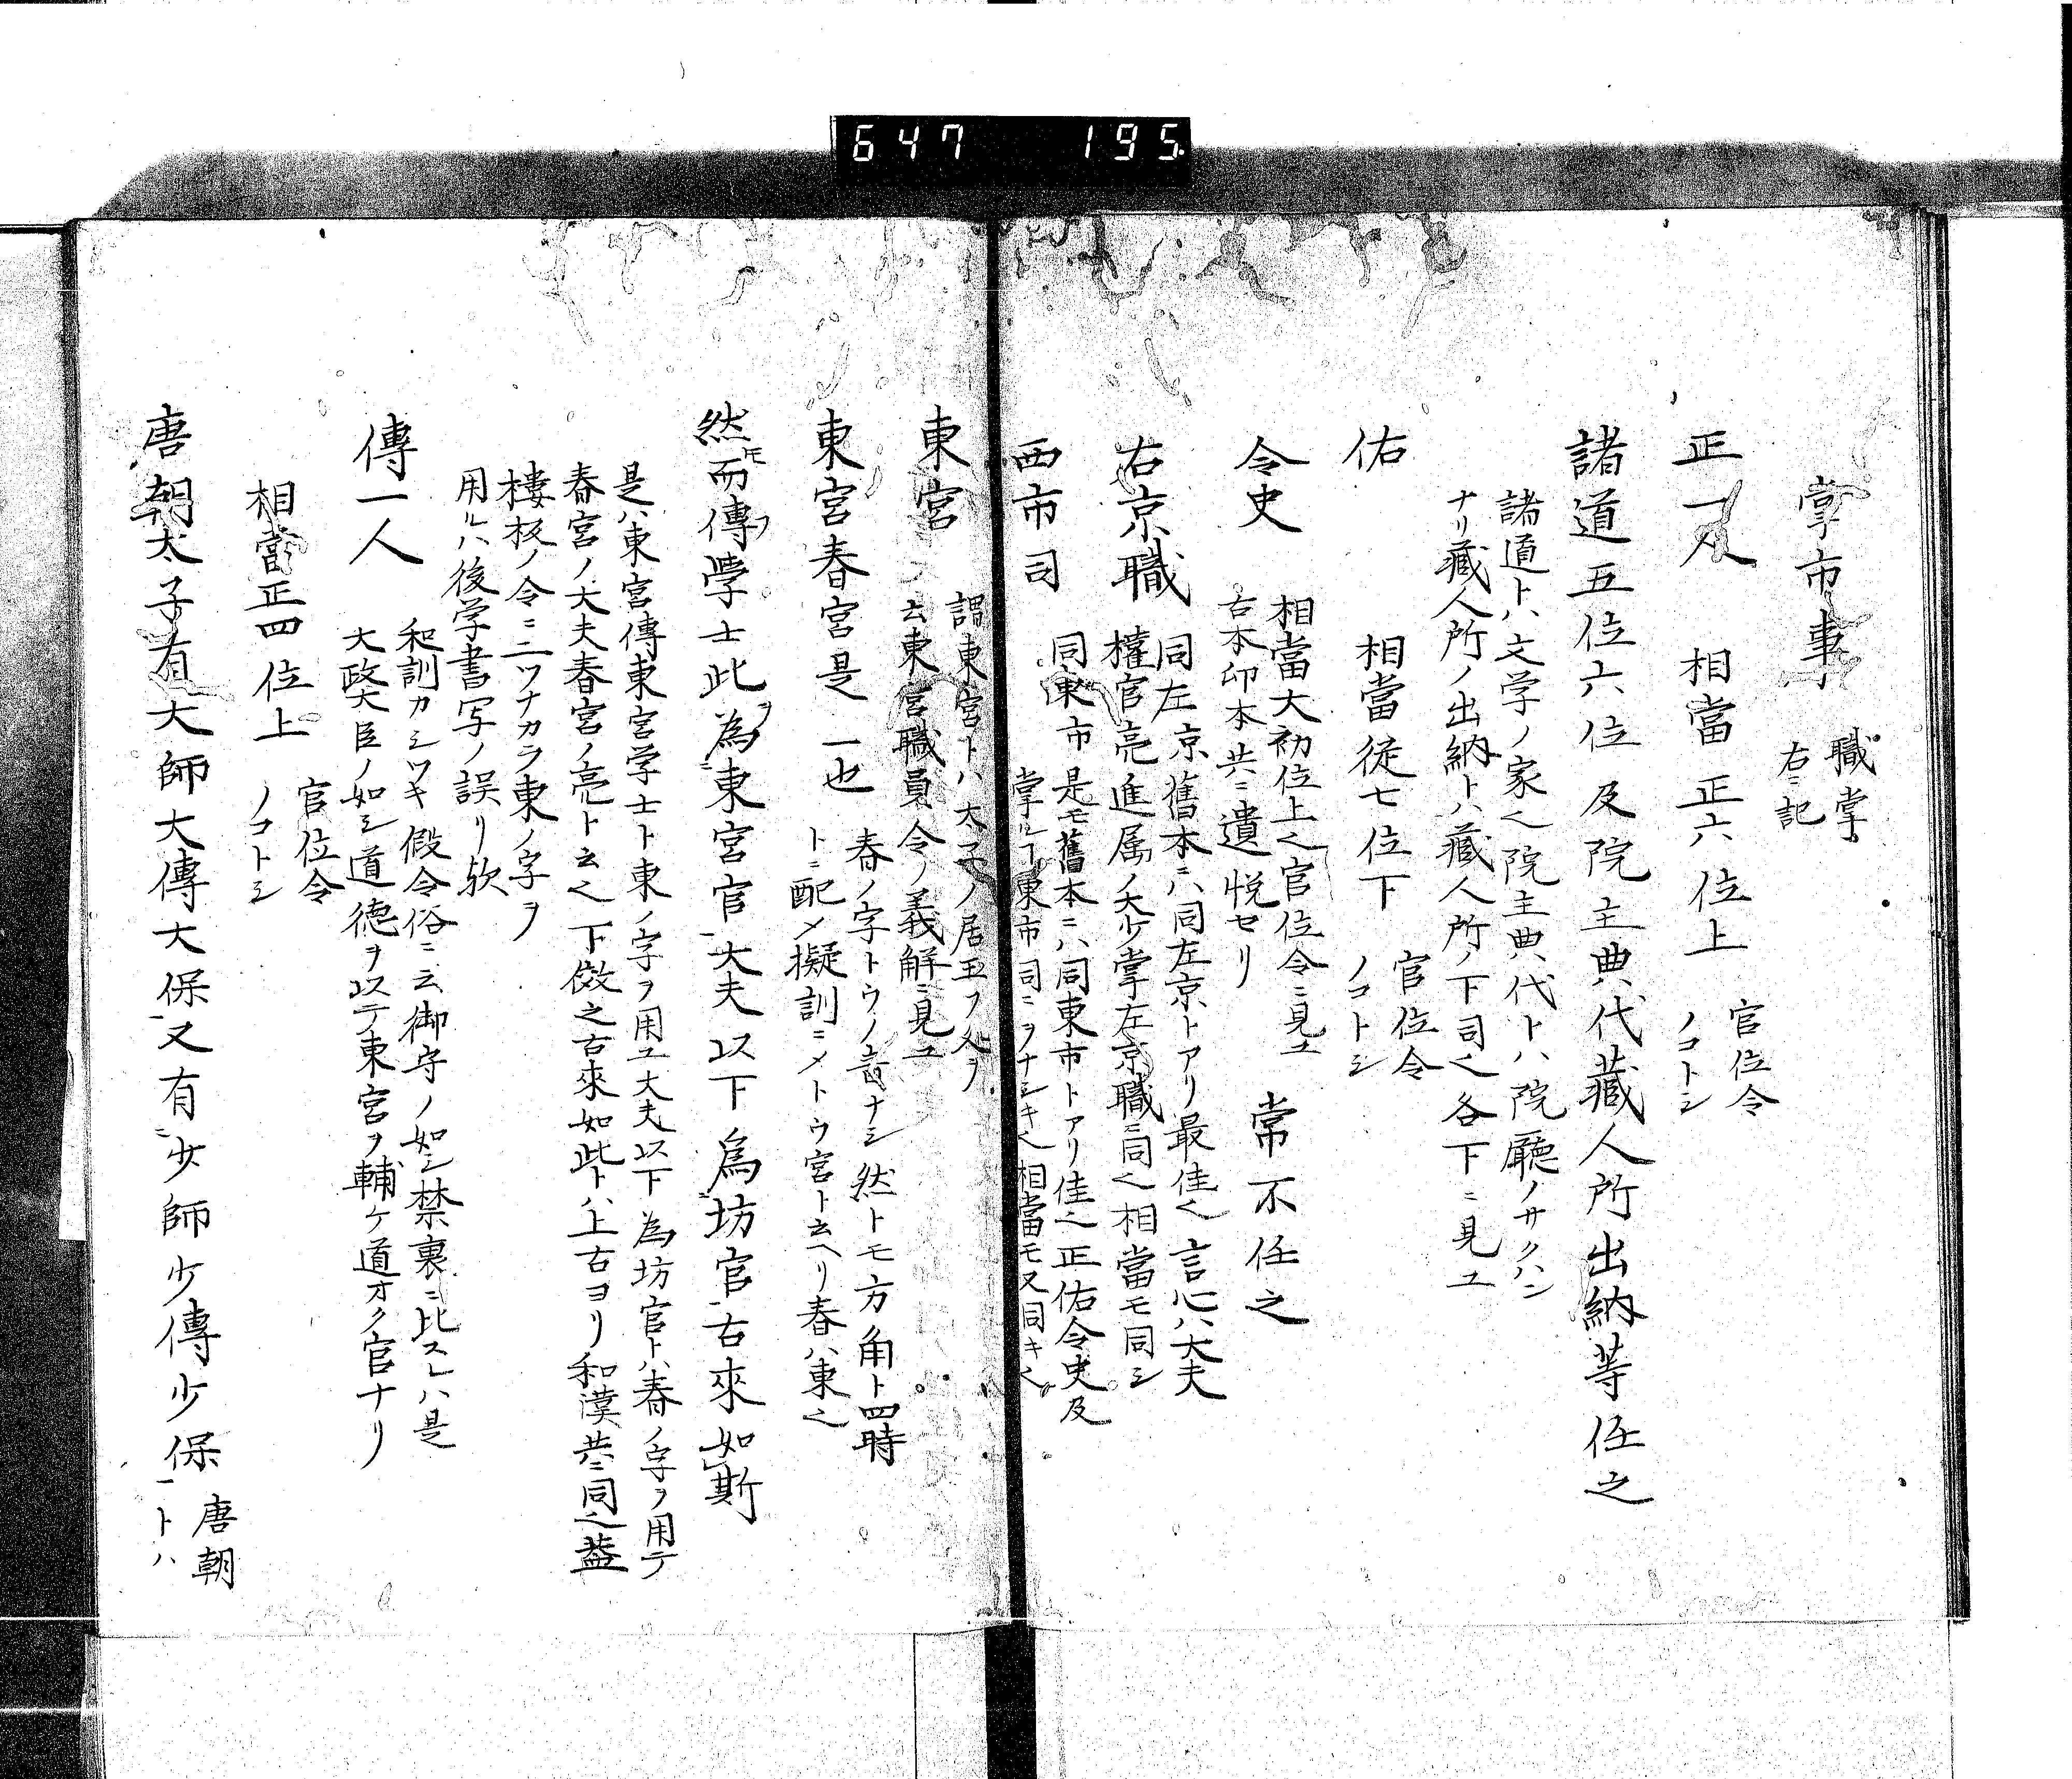 647 195
掌市事 職掌
右ニ記
正一人 相當正六位上 官位令
ノコトシ
諸道五位六位及院主典代藏人所出納等任之
諸道トハ文学ノ家也院主典代トハ院廳ノサクハン
ナリ藏人所ノ出納トハ藏人所ノ下司也各下ニ見ユ
佑 相當従七位下 官位令
ノコトシ
令史 相當大初位上也官位令ニ見ユ
古本印本共ニ遺悦セリ 常不任之
右京職 同左京舊本ニハ同左京トアリ最佳也言心ハ大夫
権官亮進属ノ大少掌左京職ニ同也相當モ同シ
西市司 同東市是モ舊本ニハ同東市トアリ佳也正佑令史及
掌ル丁東市司ニヲナシキ也相當モ又同キ也
東宮 謂東宮トハ太子ノ居玉フ処ヲ
云東宮職員令ノ義解ニ見ユ
東宮春宮是一也 春ノ字トウノ音ナシ然トモ方角ト四時
トニ配メ擬訓ニメトウ宮ト云ヘリ春ハ東也
然而傳学士此為東宮官大夫以下為坊官古來如斯
是ハ東宮傳東宮学士ト東ノ字ヲ用ユ大夫以下為坊官トハ春ノ字ヲ用テ
春宮ノ大夫春宮ノ亮ト云也下倣之古來如此トハ上古ヨリ和漢共ニ同之蓋
棲板ノ令ニ二ツナカラ東ノ字ヲ
用ルハ後学書写ノ誤リ欤
傳一人 和訓カシツキ假令俗ニ云御守ノ如シ禁裏ニ比スレハ是
大政大臣ノ如シ道徳ヲ以テ東宮ヲ輔ケ道オク官ナリ
相當正四位上 官位令
ノコトシ
唐朝太子有大師大傳大保又有少師少傳少保 唐朝
トハ